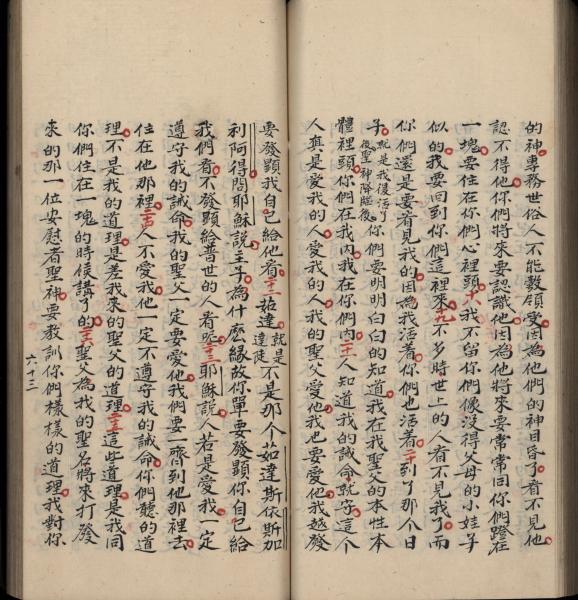 的神聖務世俗人不能彀領受因為他們的神目昏了看不見他
認不得他你們將來要認識他因為他將來要常常同你們蹬在
一塊要住在你們心裡頭十八我不留你們像沒得父母的小娃子
似的我要回到你們這裡來十九不多時世上的人看不見我了而
你們還是要看見我的因為我活着你們也活着二十到了那个日
子就是我復活了後聖神降臨後你們要明明白白的知道我在我聖父的本性本
體裡頭你們在我內我在你們內二十一人知道我的誡命就守這个
人真是愛我的人愛我的人我的聖父愛他我也要愛他我越發
要發顯我自己給他看二十二茹達就是達陡不是那个茹達斯依斯加
利阿得問耶穌說主子為什麼緣故你單要發顯你自己給
我們看不發顯給普世的人看呢二十三耶穌說人若是愛我一定
遵守我的誡命我的聖父一定要愛他我們要一齊到他那裡去
住在他那裡二十四人不愛我他一定不遵守我的誡命你們聽的道
理不是我的道理是差我來的聖父的道理二十五這些道理是我同
你們住在一塊的時候講了的二十六聖父為我的聖名將來打發
來的那一位安慰者聖神要教訓你們樣樣的道理我對你
六十三